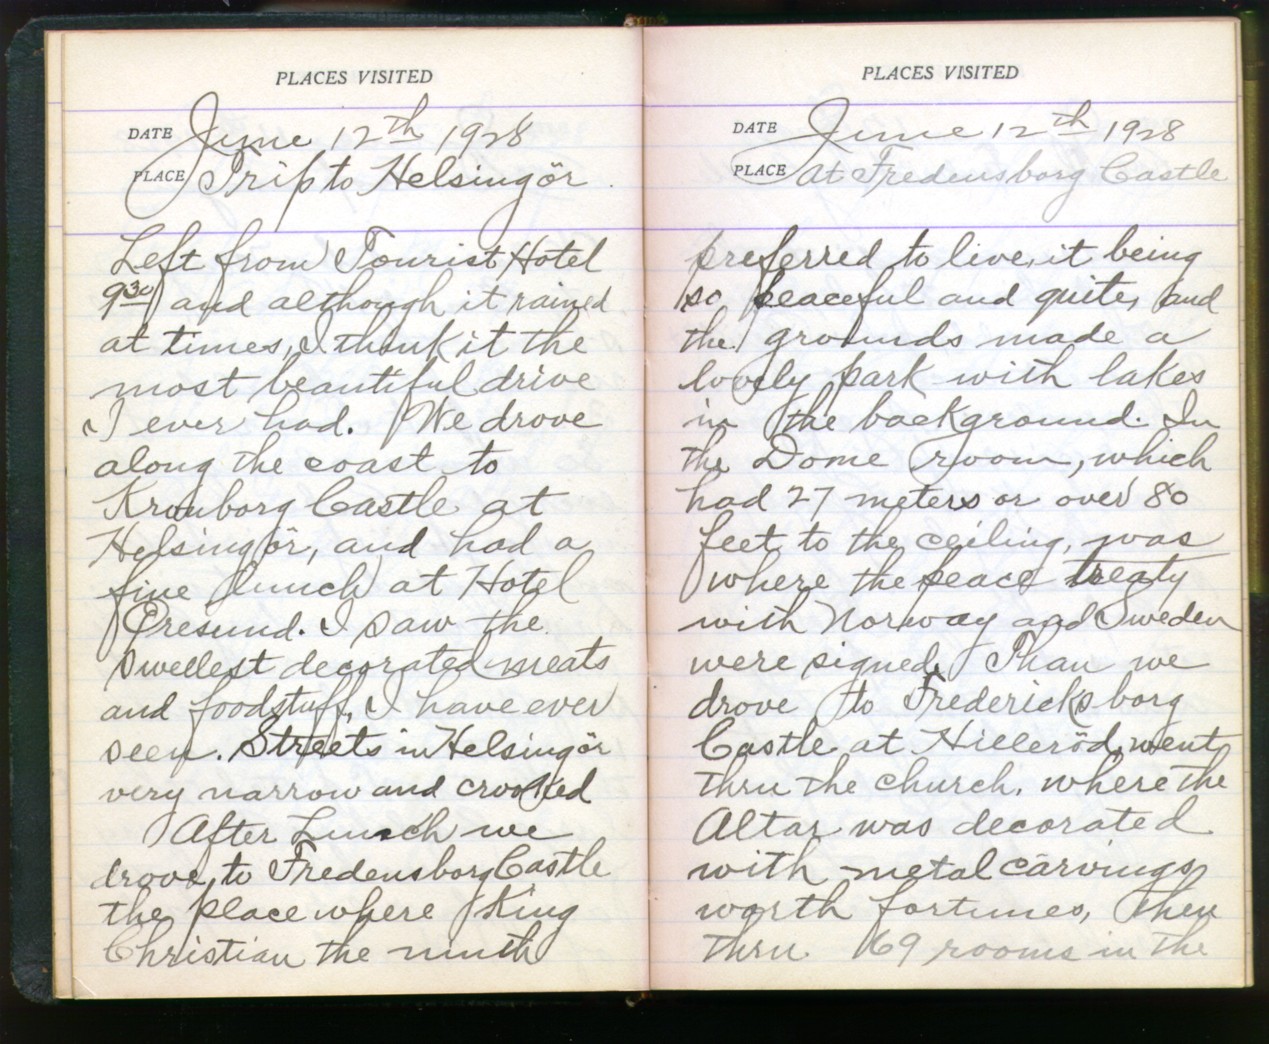 PLACES VISITED
DATE June 12th 1928
PLACE Trip to Helsingör.
Left from Tourist Hotel
930 and although it rained
at times, I think it the
most beautiful drive
I ever had. We drove
along the coast to
Kronborg Castle at
Helsingör, and had a
fine lunch at Hotel
Öresund. I saw the
swellest decorated meats
and foodstuff, I have ever
seen. Streets in Helsingör
very narrow and crooked
After Lunch we
drove to Fredensborg Castle
the place where King
Christian the ninth
PLACES VISITED
DATE June 12th 1928
PLACE at Fredensborg Castle
preferred to live, it being
so peaceful and quite, and
the grounds made a
lovely park with lakes
in the background. In
the Dome room, which
had 27 meters or over 80
feet to the ceiling, was
where the peace treaty
with Norway and Sweden
were signed. Than we
drove to Fredericksborg
Castle at Hilleröd, went
thru the church, where the
Altar was decorated
with metal carvings
worth fortunes, then
thru 69 rooms in the